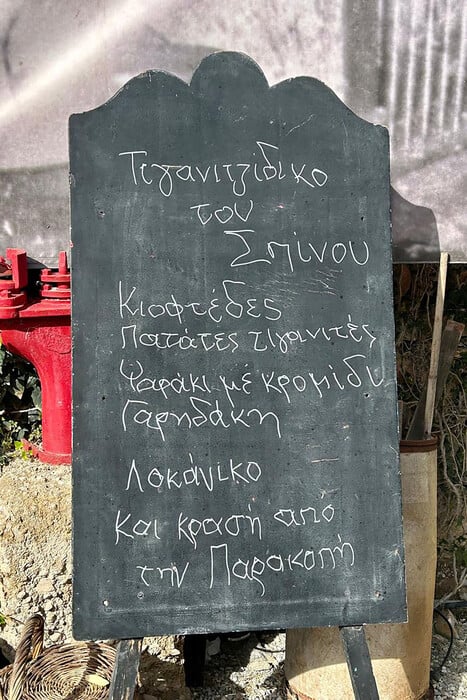 Τιγανιτζίδικο
του
Σπίνου
Κιοφτέδες
Πατάτες τιγανιτές
Ψαράκι μέ κρομίδι
Γαρηδάκη
Λοκάνικο
και κρασή από
την Παρακοπή